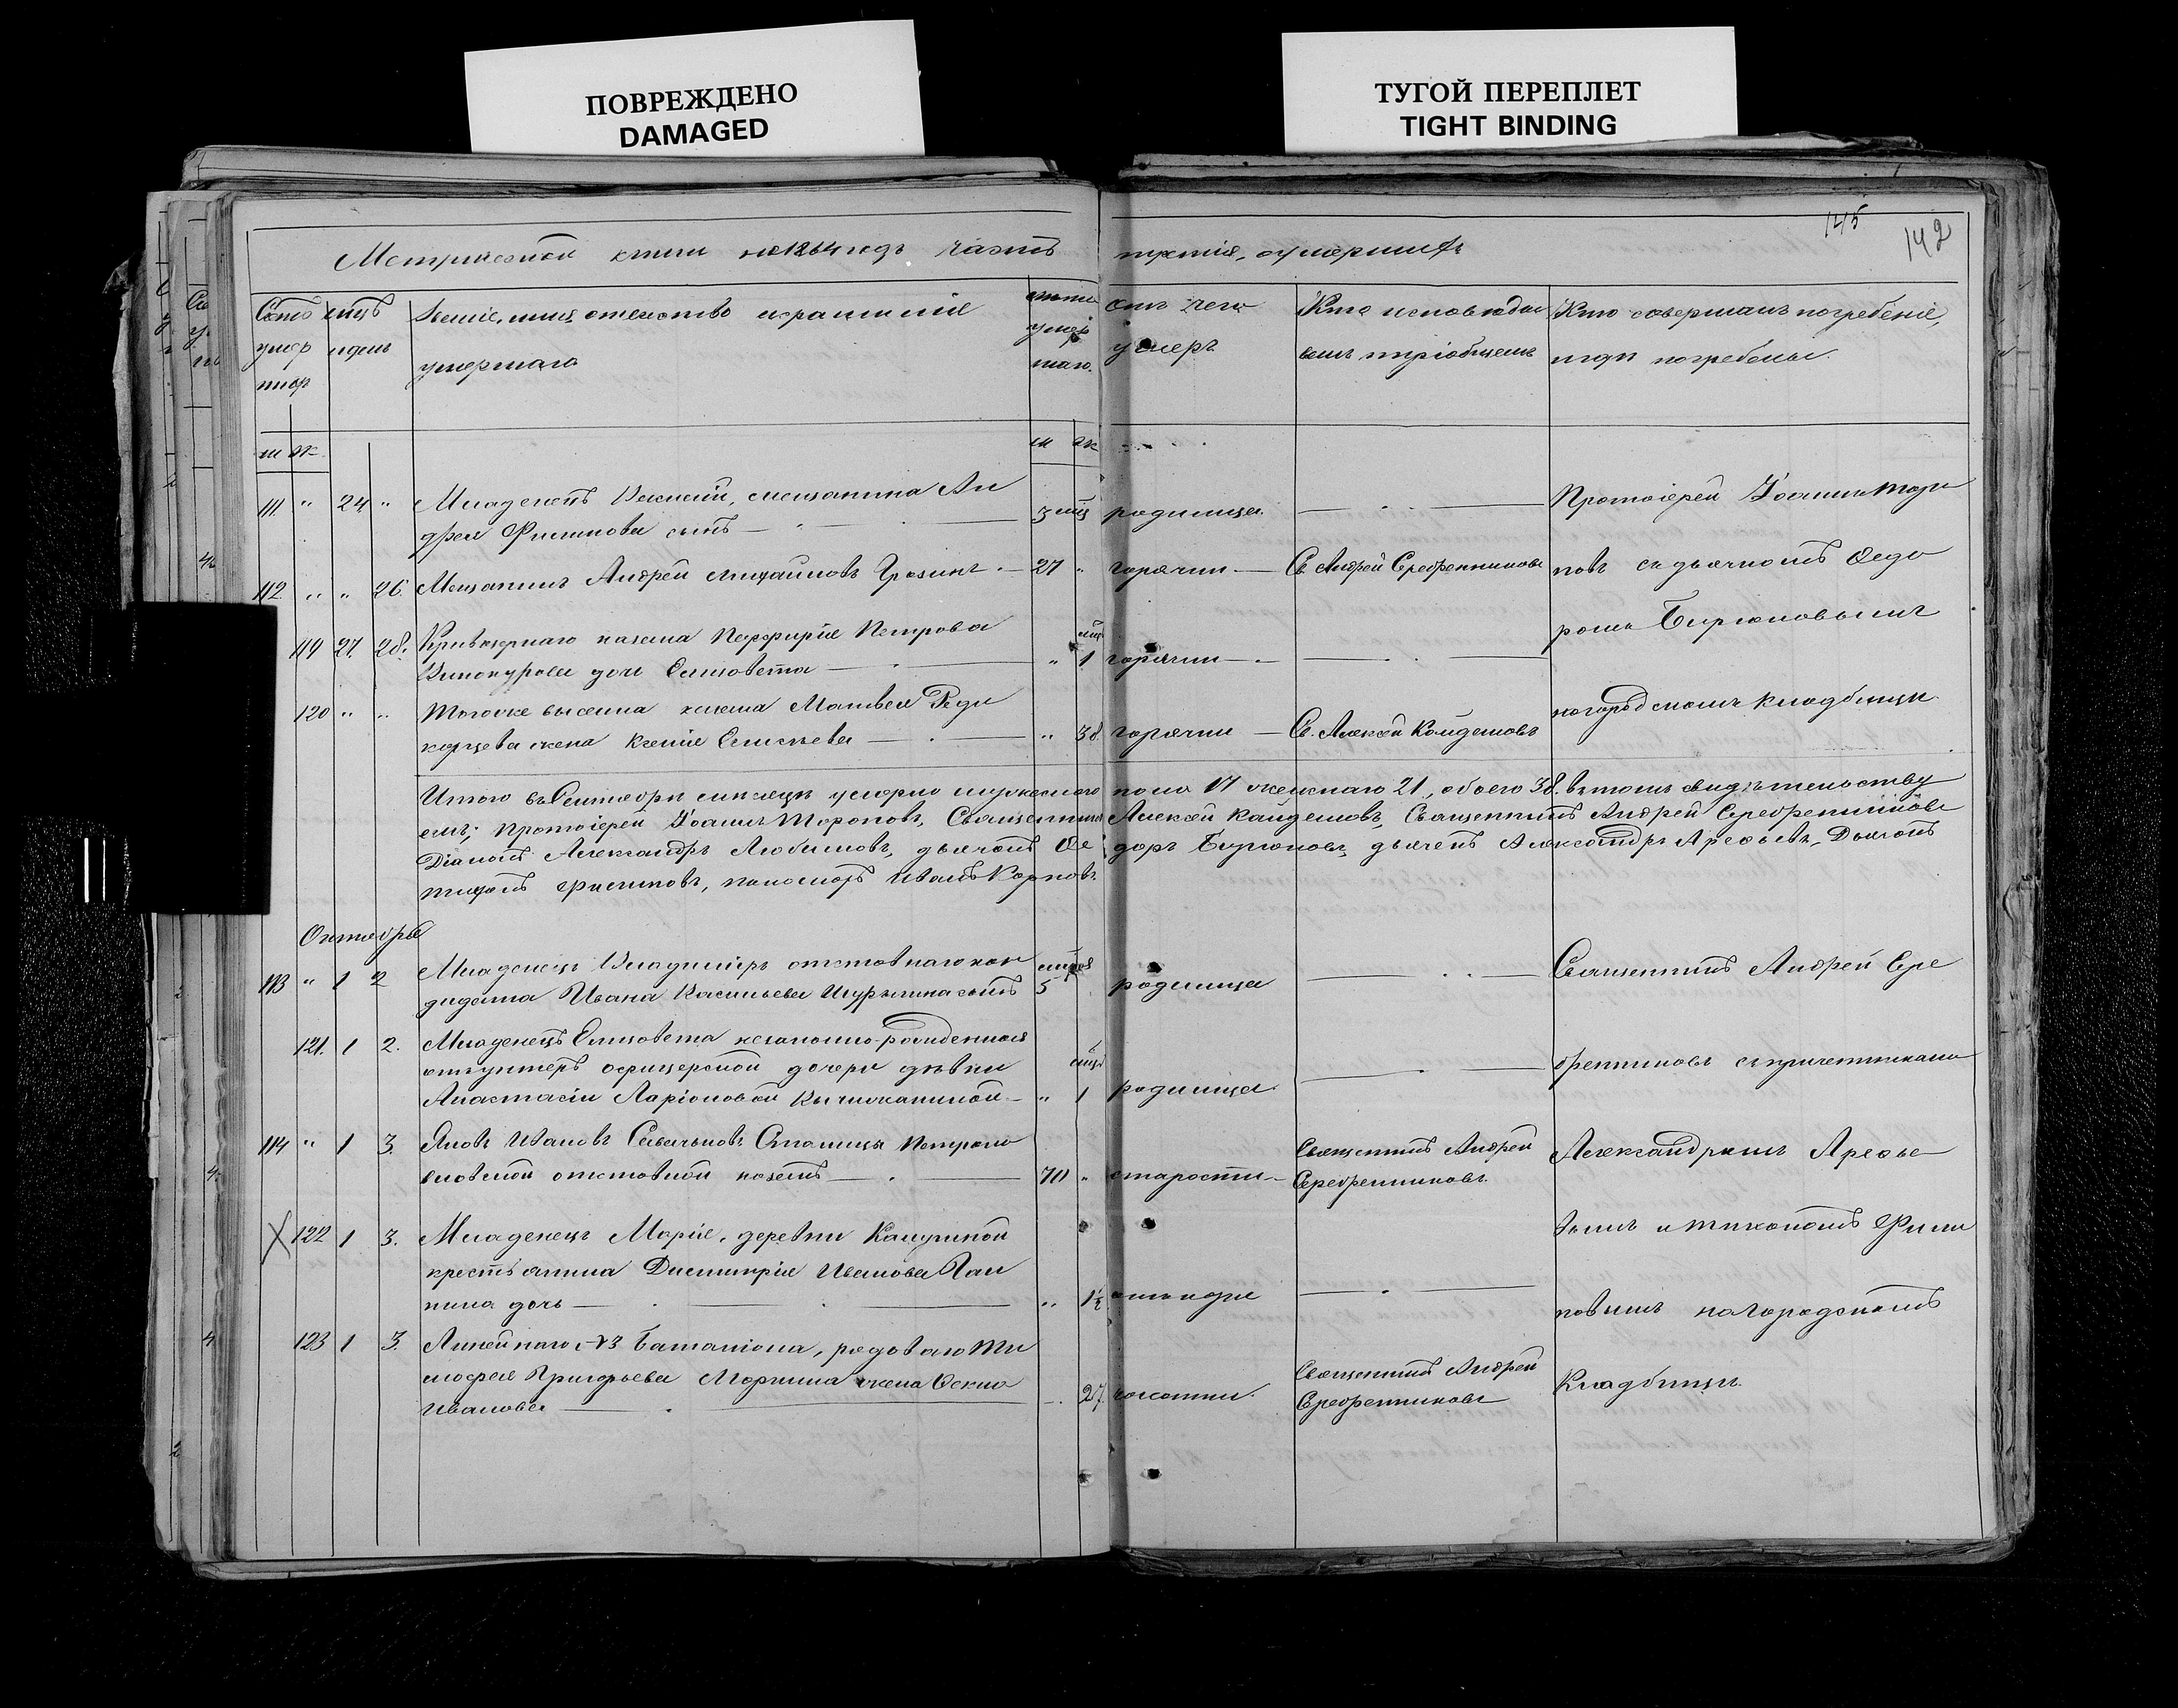 ПОВРЕЖДЕНО
DAMAGED
ТУГОЙ ПЕРЕПЛЕТ
TIGHT BINDING
145
142
Метрической книги на 1864 годъ часть третія, о умершихъ
Счетъ умер шихъ
мцъ и день
Званіе, имя, отечество и фамилія
умершаго
лета умер шаго.
отъ чего
умеръ
Кто исповедал
валъ и пріобщалъ
Кто совершалъ погребеніе,
и где погребены.
м ж
м ж
111. " 24 " Младенецъ Василій, мещанина Ан
дрея Филипова сынъ 3 мцъ родимца
Протоіерей Іоаннъ Торо
112. " " 26. Мещанинъ Андрей Михайловъ Грозинъ 27 " горячки Св. Андрей Серебренниковъ
повъ съ дьячкомъ Федо
119 27. 28. Кривозернаго казака Перфирія Петрова
Винокурова дочь Елисавета " 1 мцъ горячки
ромъ Бирюковымъ
120 " " Тогоже выселка казака Матвея Реди
корцева жена Ксенія Елисеева " 38. горячки Св. Алексей Кайдаловъ
на городскомъ кладбищи.
Итого въ Сентябре месяце умерло мужескаго пола 17 женскаго 21, обоего 38. въ томъ свидетельству
емъ; Протоіерей Іоаннъ Тороповъ, Священникъ Алексей Кайдаловъ, Священникъ Андрей Серебренниковъ
Діаконъ Александръ Любимовъ, дьячекъ Фе доръ Бирюковъ, дьячекъ Александръ Арефьевъ, Дьячокъ
Тихонъ Филиповъ, пономарь Иванъ Карповъ.
Октябрь
113 " 1 2 Младенецъ Владиміръ отставнаго кан
дидата Ивана Васильева Шурыгина сынъ 5 мцовъ родимца
Священникъ Андрей Сере
121. 1 2. Младенецъ Елисавета незаконно-рожденная
отъ унтеръ офицерской дочери девки
Анастасіи Ларіоновой " 1 мцъ родимца
бренниковъ съ причетниками
114 " 1 3. Яковъ Ивановъ Савельковъ Станицы Петропа
вловской отставной казакъ 70 " старости Священникъ Андрей
Серебренниковъ.
Александромъ Арефье
X 122 1 3. Младенецъ Марія, деревни Калугиной
крестьянина Димитрія Иванова Пан
кина дочь " 1½ отъ кори
вымъ и Тихономъ Фили
повымъ на городскомъ
123 1 3. Линейнаго №3 Баталіона, рядоваго Ти
мофея Григорьева Моркина жена Фекла
Иванова " 27. чахотки. Священникъ Андрей
Серебренниковъ
Кладбищи.